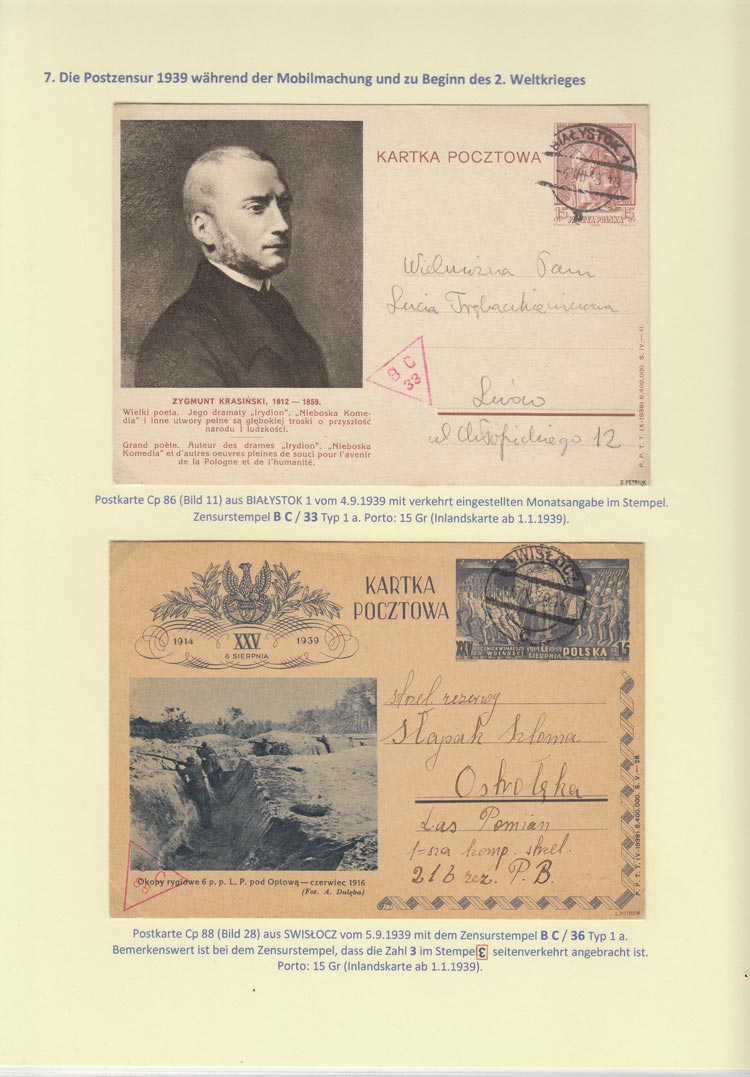 7. Die Postzensur 1939 während der Mobilmachung und zu Beginn des 2. Weltkrieges
KARTKA POCZTOWA
BIAŁYSTOK 1
15 15
POCZTA POLSKA
Wielmożna Pani
Lucia
Lwów
ul. Chłopickiego 12
B C
33
ZYGMUNT KRASIŃSKI, 1812 — 1859.
Wielki poeta. Jego dramaty „Irydion", „Nieboska Kome-
dia" i inne utwory pełne są głębokiej troski o przyszłość
narodu i ludzkości.
Grand poète. Auteur des drames „Irydion", „Nieboska
Komedia" et d'autres oeuvres pleines de souci pour l'avenir
de la Pologne et de l'humanité.
P. P. T. T. (X-1938) 6.400.000. S. IV.— 11.
Postkarte Cp 86 (Bild 11) aus BIAŁYSTOK 1 vom 4.9.1939 mit verkehrt eingestellten Monatsangabe im Stempel.
Zensurstempel B C / 33 Typ 1 a. Porto: 15 Gr (Inlandskarte ab 1.1.1939).
KARTKA
POCZTOWA
SWISŁOCZ
1914 XXV 1939
6 SIERPNIA
SIERPNIA POLSKA 15
strzel. rezerwy
Słapak Szloma
Ostrołęka
Las Pomian
1=sza komp. strzel.
216 rez. P. B.
B C
Okopy ryglowe 6 p. p. L. P. pod Optową — czerwiec 1916
(Fot. A. Dulęba)
P. P. T. T. (V-1939) 6.400.000. S. V.— 28.
Postkarte Cp 88 (Bild 28) aus SWISŁOCZ vom 5.9.1939 mit dem Zensurstempel B C / 36 Typ 1 a.
Bemerkenswert ist bei dem Zensurstempel, dass die Zahl 3 im Stempel seitenverkehrt angebracht ist.
Porto: 15 Gr (Inlandskarte ab 1.1.1939).